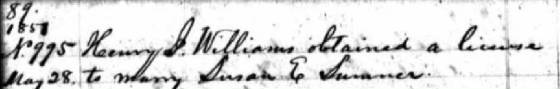 89.
1851
No. 995 Henry J. Williams obtained a license
May 28. to marry Susan E Sumner.